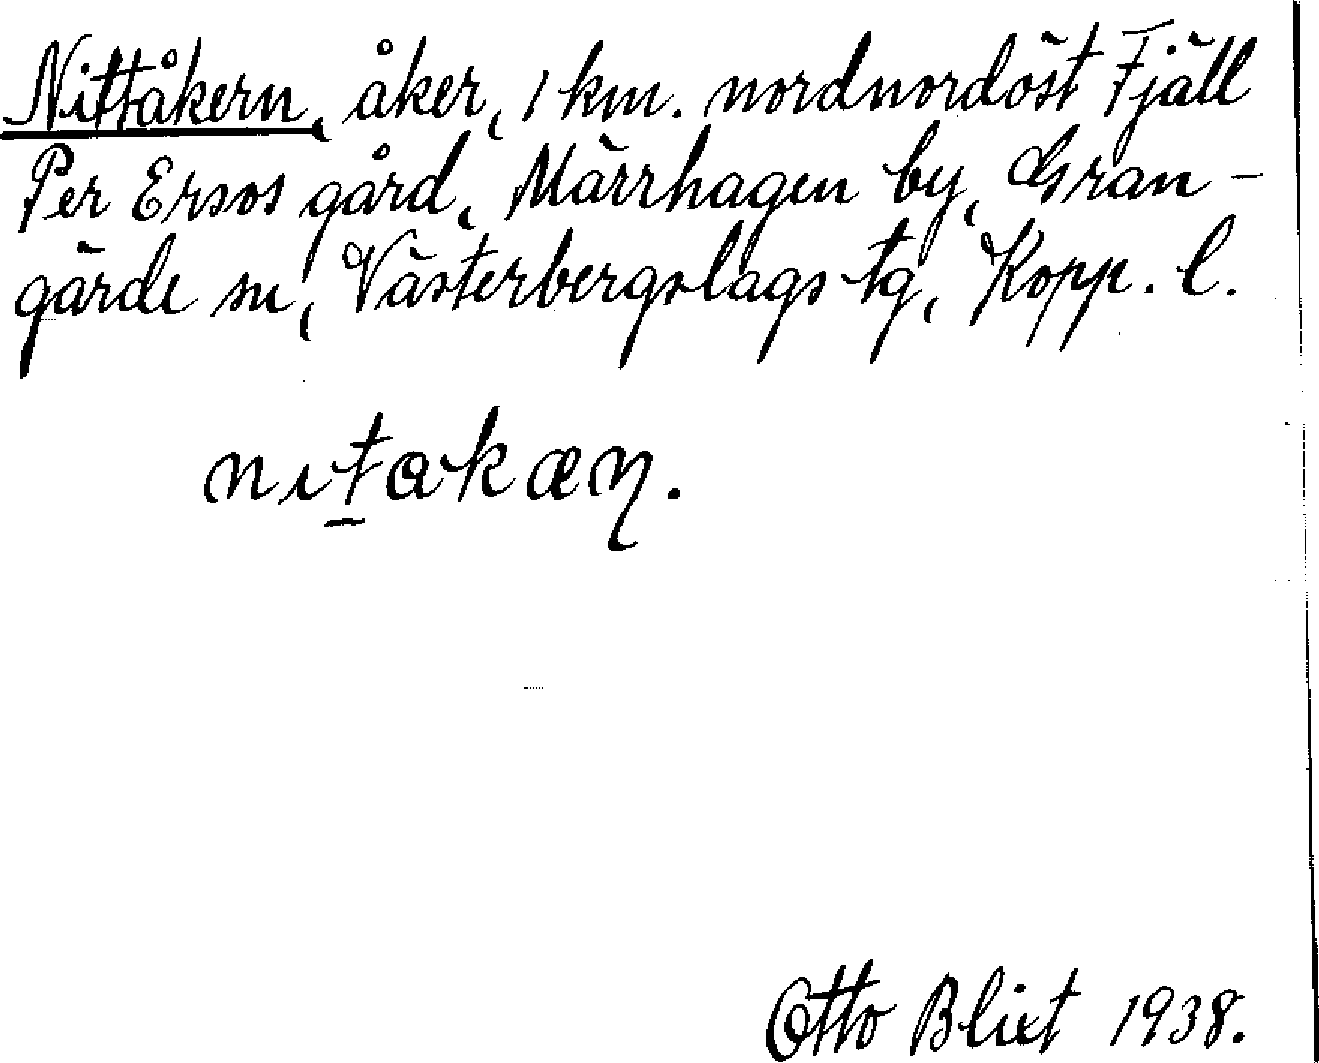 Nittåkern, åker, 1 km. nordnordöst Fjäll
Per Ersos gård, Märrhagen by, Gran-
gärde sn, Västerbergslags tg, Kopp. l.
nıt̠ɑkæn̡.
Otto Blixt 1938.